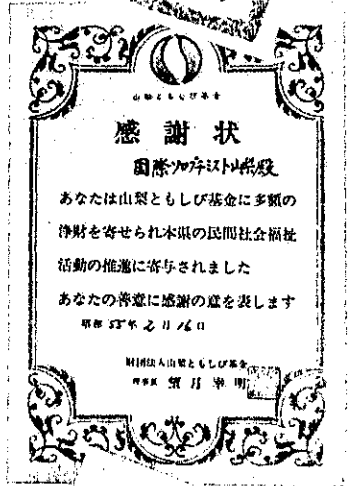 山梨ともしび基金
感謝状
国際ソロプチミスト山梨殿
あなたは山梨ともしび基金に多額の
浄財を寄せられ本県の民間社会福祉
活動の推進に寄与されました
あなたの善意に感謝の意を表します
昭和55年2月16日
財団法人山梨ともしび基金
理事長 望月幸明